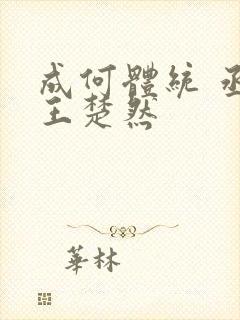 成何體統 丞
王楚然
華林